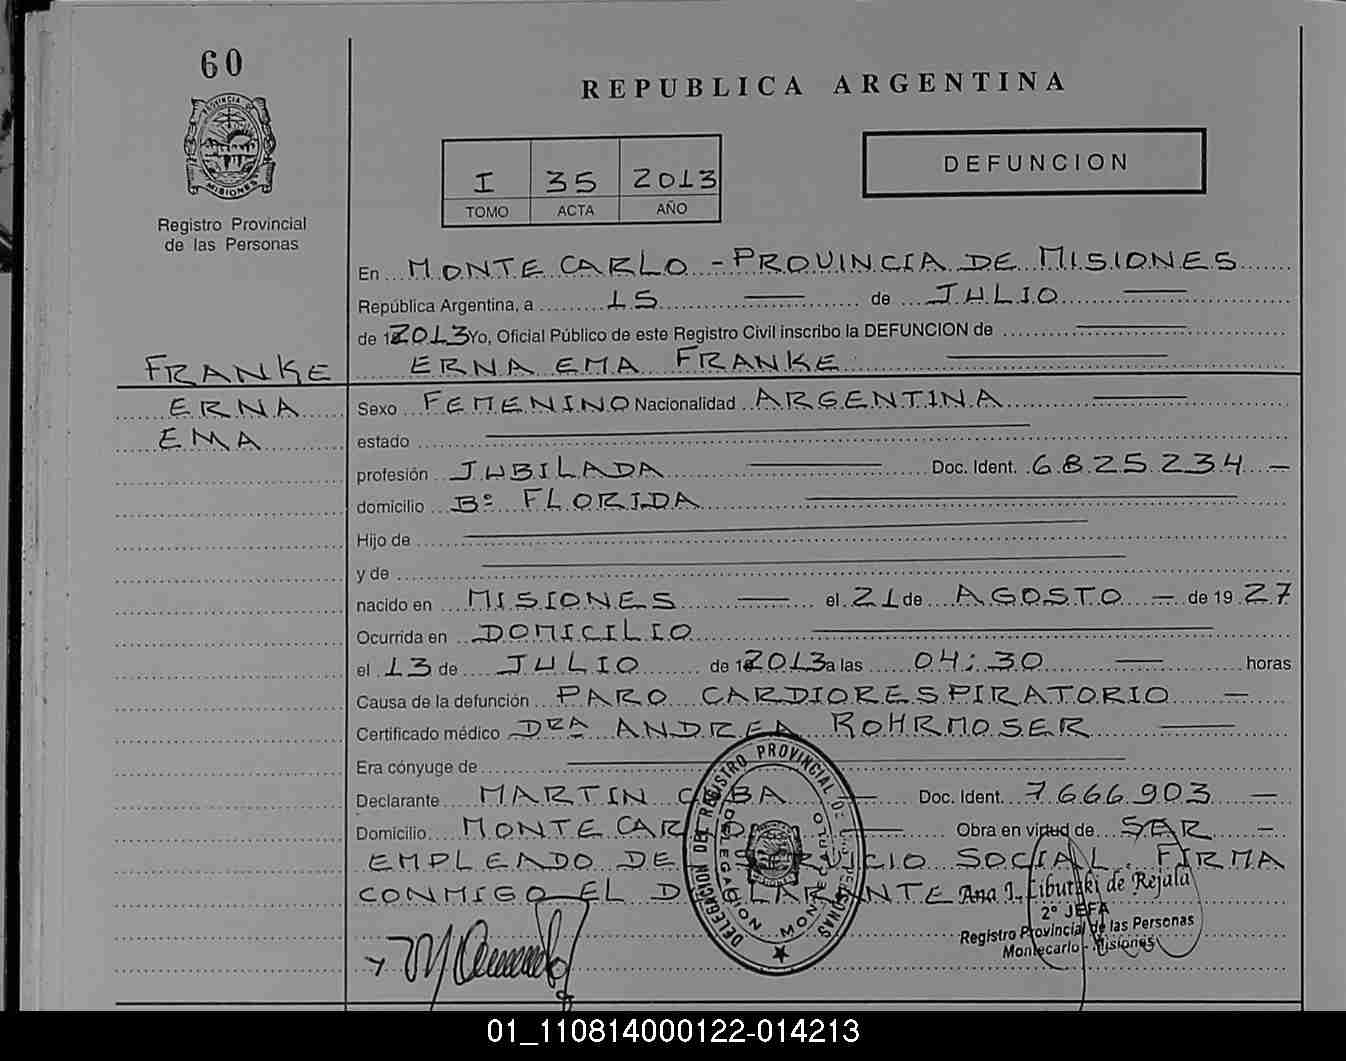 60
REPUBLICA ARGENTINA
PROVINCIA DE
MISIONES
Registro Provincial
de las Personas
I 35 2013
TOMO ACTA AÑO
DEFUNCION
En MONTECARLO - PROVINCIA DE MISIONES
República Argentina, a 15 de JULIO
de 2013 Yo, Oficial Público de este Registro Civil inscribo la DEFUNCION de
FRANKE ERNA EMA FRANKE
ERNA Sexo FEMENINO Nacionalidad ARGENTINA
EMA estado
profesión JUBILADA Doc. Ident. 6825234 -
domicilio Bº FLORIDA
Hijo de
y de
nacido en MISIONES el 21 de AGOSTO - de 1927
Ocurrida en DOMICILIO
el 13 de JULIO de 2013 a las 04:30 horas
Causa de la defunción PARO CARDIORESPIRATORIO -
Certificado médico DRA ANDREA ROHRMOSER
Era cónyuge de
Declarante MARTIN Doc. Ident. 7666903 -
Domicilio MONTECARLO Obra en virtud de SER -
EMPLEADO DE SERVICIO SOCIAL. FIRMA
CONMIGO EL DECLARANTE
DELEGACION DEL REGISTRO PROVINCIAL DE LAS PERSONAS
DELEGACION MONTECARLO
Ana I. Cibutzki de Rejala
2º JEFA
Registro Provincial de las Personas
Montecarlo - Misiones
01_110814000122-014213